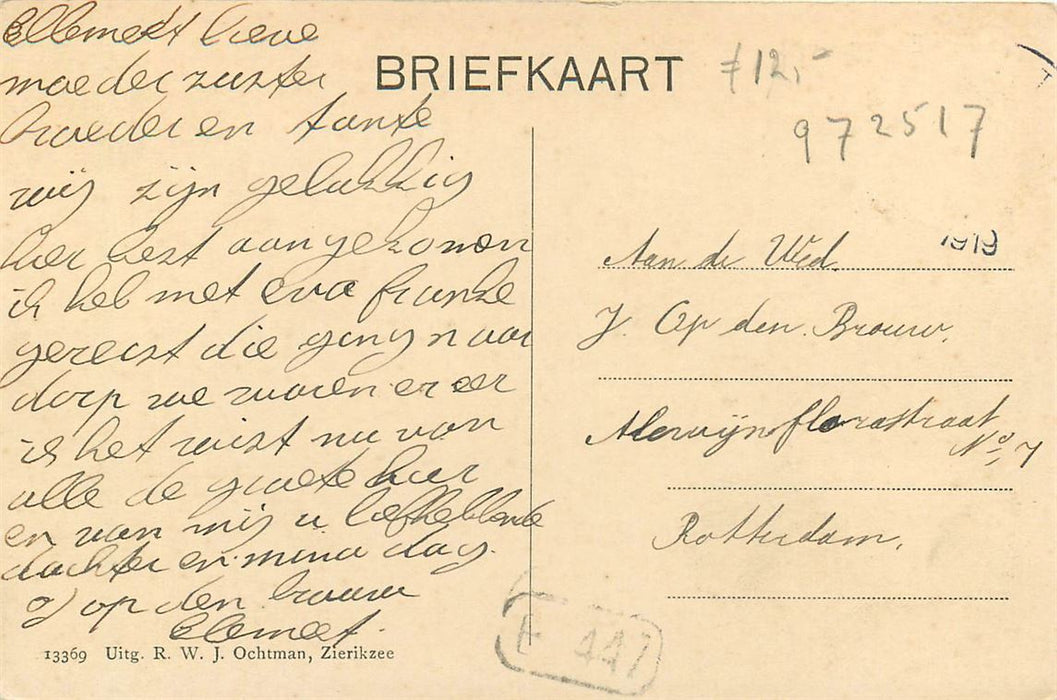 Ellemeet lieve
moeder zuster
broeder en tante
wij zijn gelukkig
hier best aangekomen
ik heb met eva franke
gereist die ging naar
dorp we waren er eer
ik het wist nu van
alle de groete hier
en van mij u liefhebbende
dochter en mina dag.
op den brouw
Ellemeet.
13369 Uitg. R. W. J. Ochtman, Zierikzee
BRIEFKAART
f 12,-
972517
1919
Aan de Wed.
J. Op den Brouw.
Merwijnflorastraat
No 7
Rotterdam.
F 441